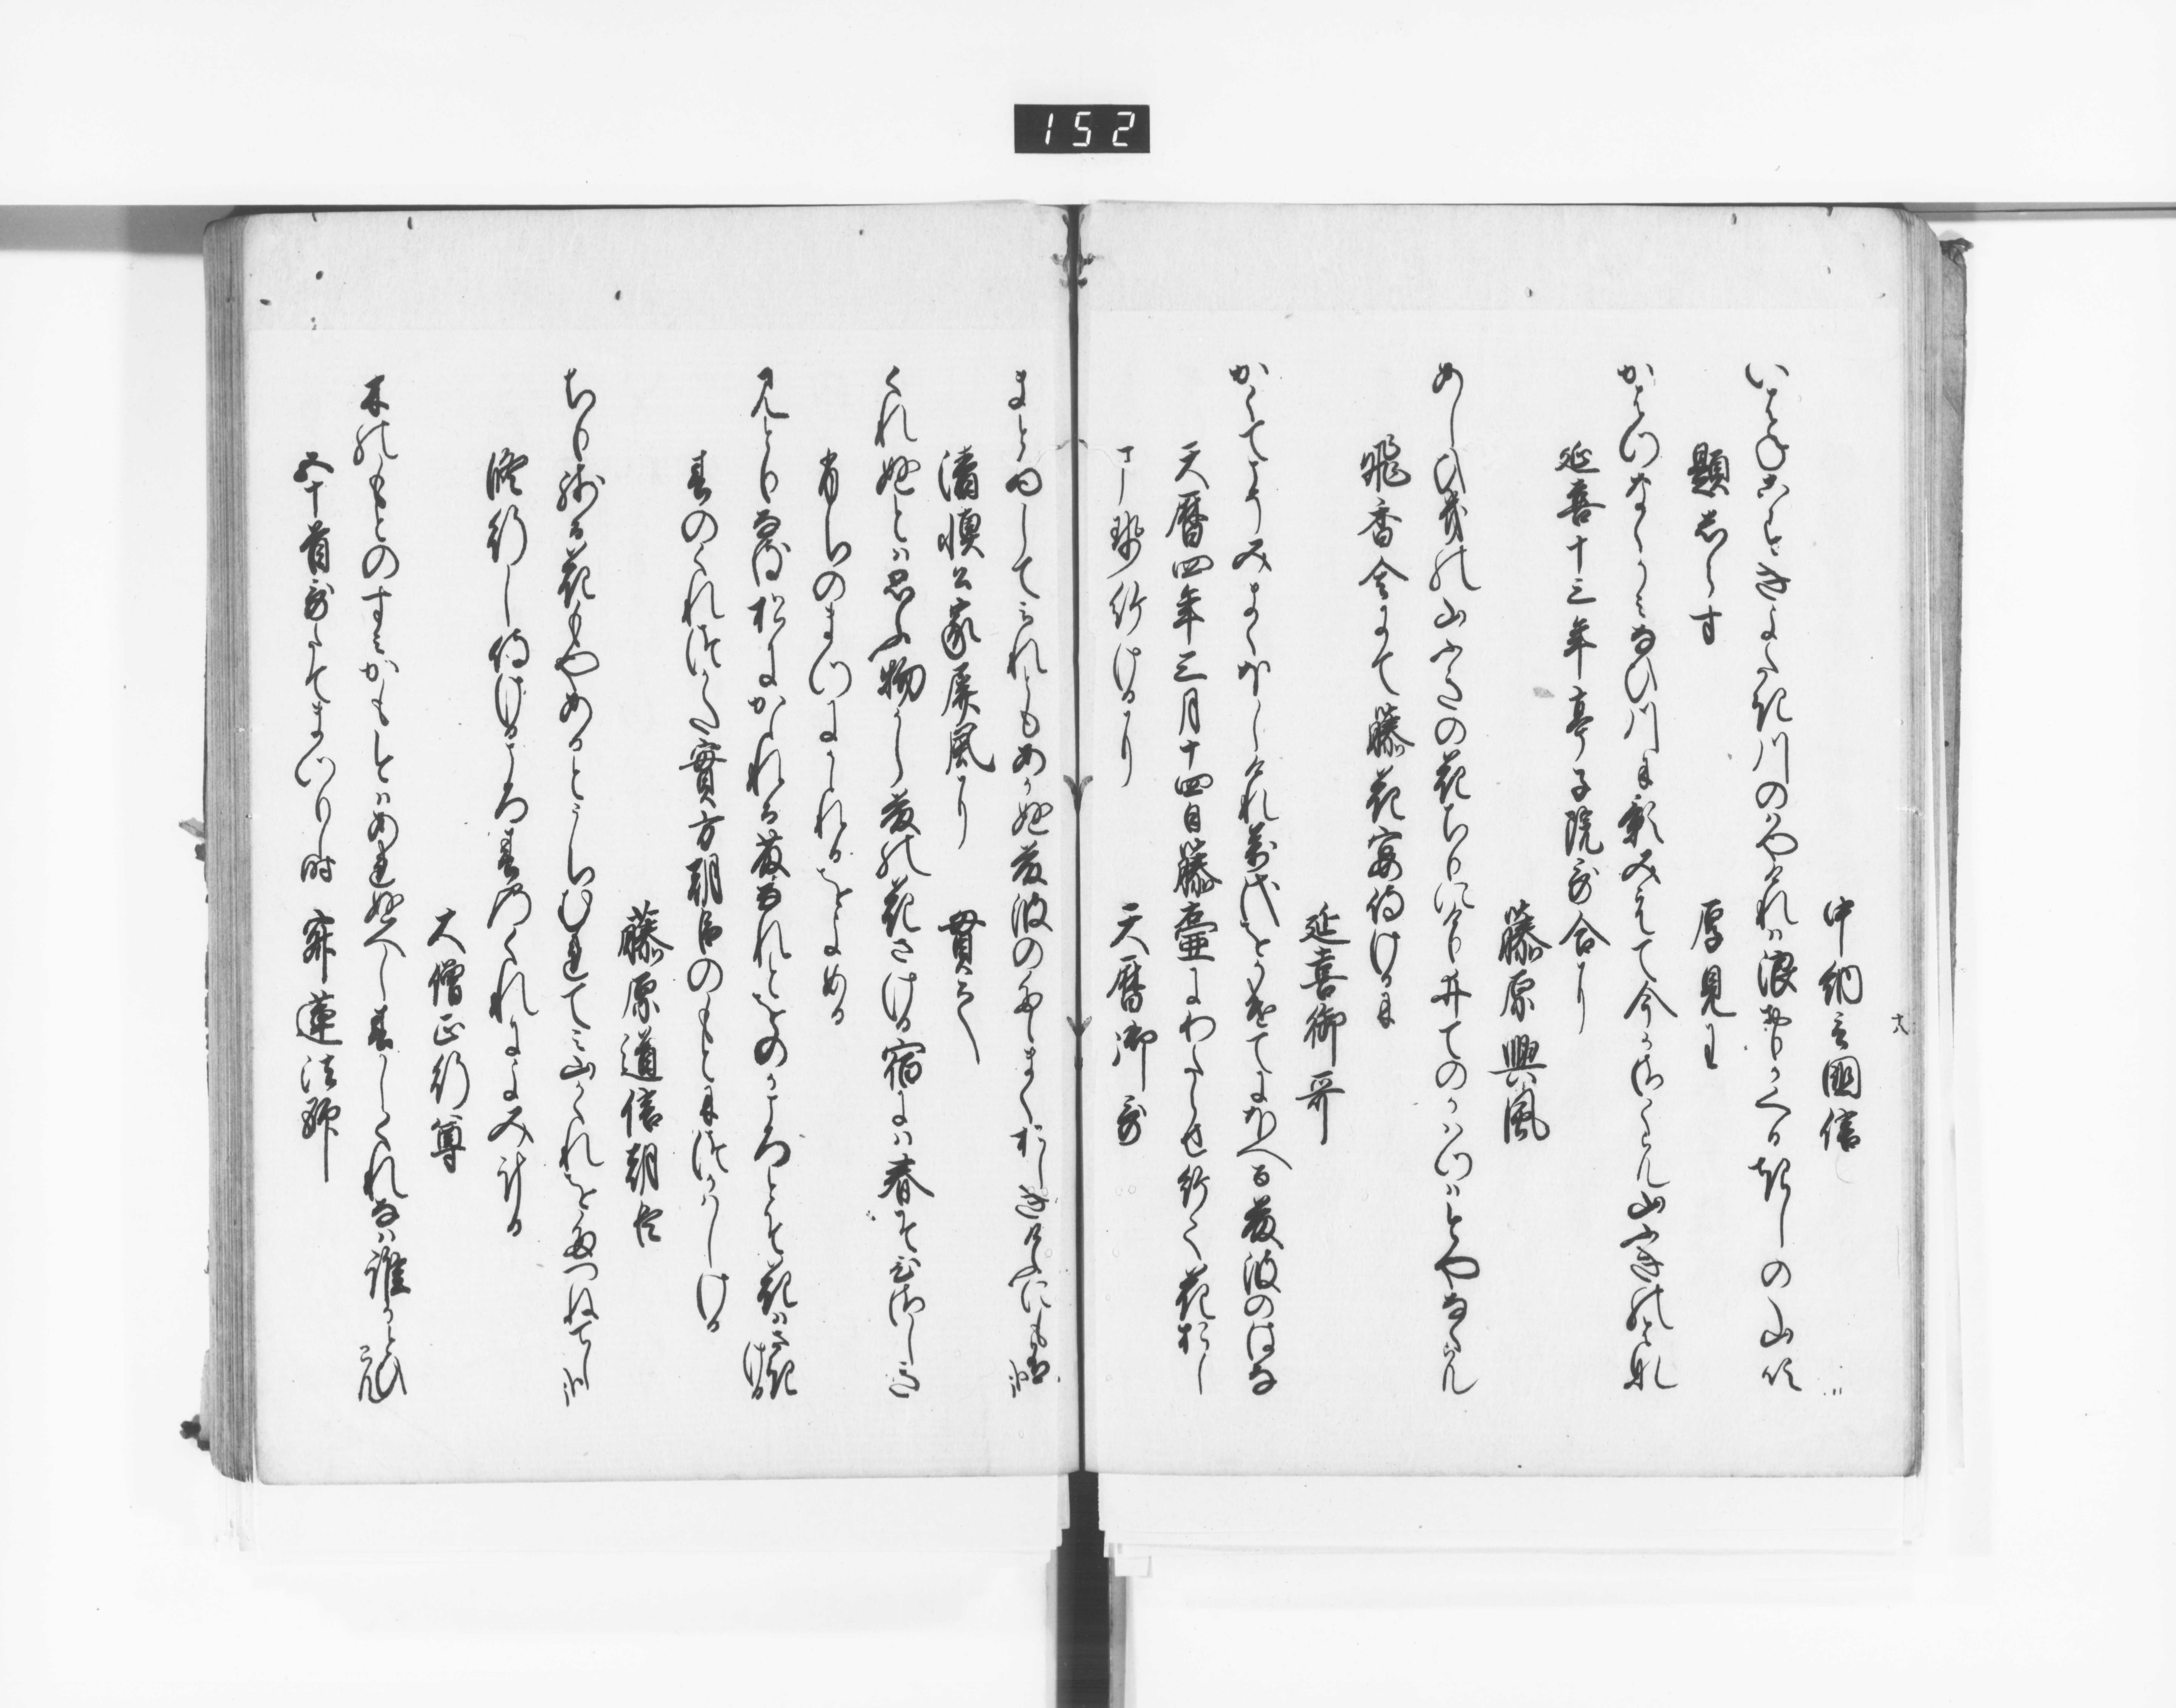 152
十八
中納言國信
いはねこすきよたき川のはやけれは浪おりかくるきしの山吹
題しらす　厚見王
かはつなくかみなひ川に影みえて今かさくらん山ふきのはな
延喜十三年亭子院哥合に
藤原興風
あしひきの山ふきの花ちりにけり井てのかはつはいまやなくらん
飛香舎にて藤花宴侍けるに
延喜御哥
かくてこそみまくほしけれ万代をかけてにほへる藤波のはな
天暦四年三月十四日藤壷にわたらせ給て花おし
ませ給けるに　天暦御哥
まとゐしてみれともあかぬ藤波のたゝまくおしきけふにも有哉
清慎公家屏風に　貫之
くれぬとは思ふ物から藤の花さける宿には春そひさしき
ふちのまつにかゝれるをよめる
みとりなる松にかゝれる藤なれとをのかころとそ花はさきける
春のくれつかた實方朝臣のもとにつかはしける
藤原道信朝臣
ちり残る花もやあるとうちむれてみ山かくれをたつねてし哉
修行し侍けるころ春のくれによみける
大僧正行尊
木のもとのすみかもいまはあれぬへし春しくれなは誰かとひこん
五十首哥たてまつりし時　寂蓮法師